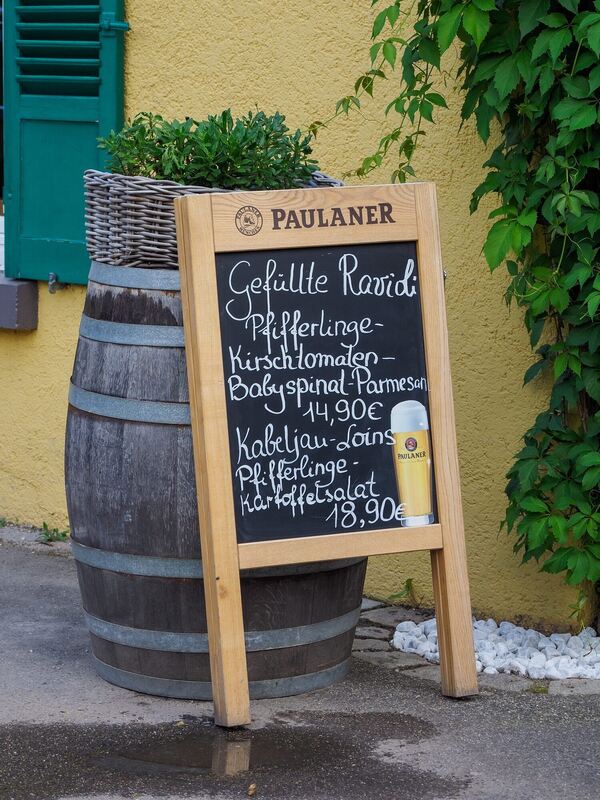 PAULANER
Gefüllte Ravioli
Pfifferlinge-
Kirschtomaten-
Babyspinat-Parmesan
14,90€
Kabeljau-Loins
PAULANER
Pfifferlinge-
Kartoffelsalat
18,90€